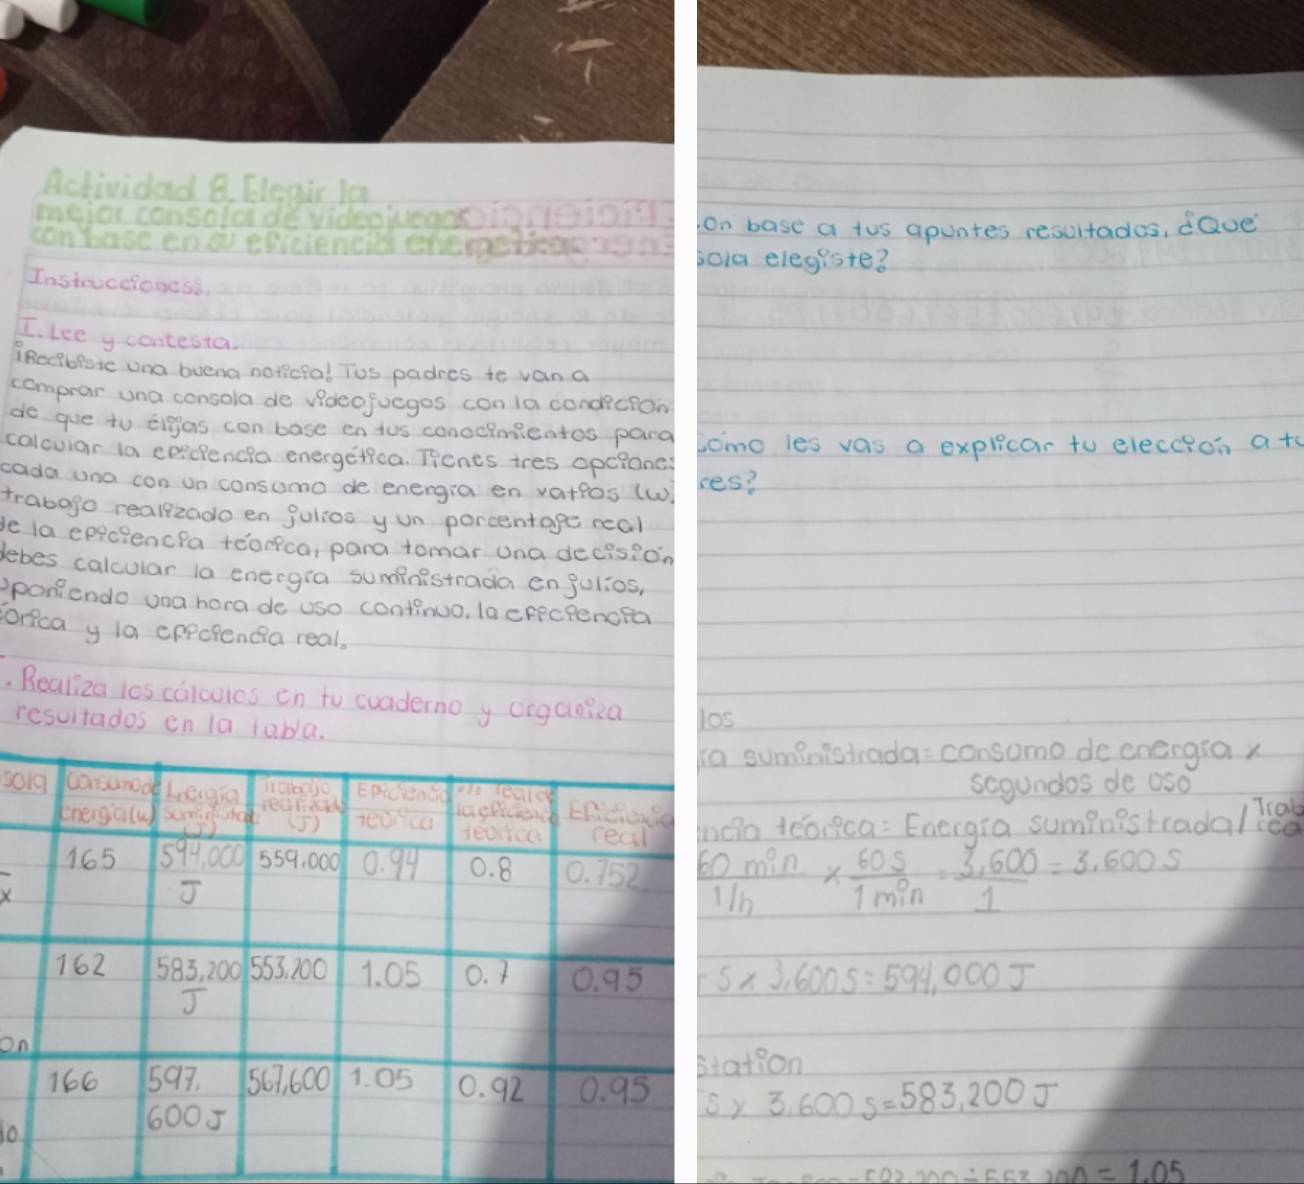 Actividad 8. Elegir la
mejor consola de videojuegos
con base en su eficiencia energética
Instrucciones:
I. Lee y contesta.
¡Recibiste una buena noticia! Tus padres te van a
comprar una consola de videojuegos con la condición
de que tu elijas con base en tus conocimientos para
calcular la eficiencia energética. Tienes tres opciones
cada una con un consumo de energía en vatios (w)
trabajo realizado en julios y un porcentaje real
de la eficiencia teórica, para tomar una decisión
debes calcular la energía suministrada en julios,
oponiendo una hora de uso continuo. la eficiencia
órica y la eficiencia real.
. Realiza los cálculos en tu cuaderno y organiza
resultados en la tabla.
sola consumo de energía(w) Energía suministrada (J) Trabajo realizado (J) Eficiencia teórica % real de la eficiencia teórica Eficiencia real
x 165 594,000 J 559,000 0.94 0.8 0.752
on 162 583,200 J 553,200 1.05 0.7 0.95
do 166 597,600 J 567,600 1.05 0.92 0.95
on base a tus apuntes resultados, ¿Que
sola elegiste?
Como les vas a explicar tu elección a tu
res?
los
ía suministrada = consumo de energía x
segundos de uso
ncia teórica = Energía suministrada/ Trab
rea
60 min / 1/h x 60 s / 1 min = 3,600 / 1 = 3.600 s
s x 3,600 s = 594,000 J
station
s x 3.600 s = 583,200 J
583,200 ÷ 553,200 = 1.05